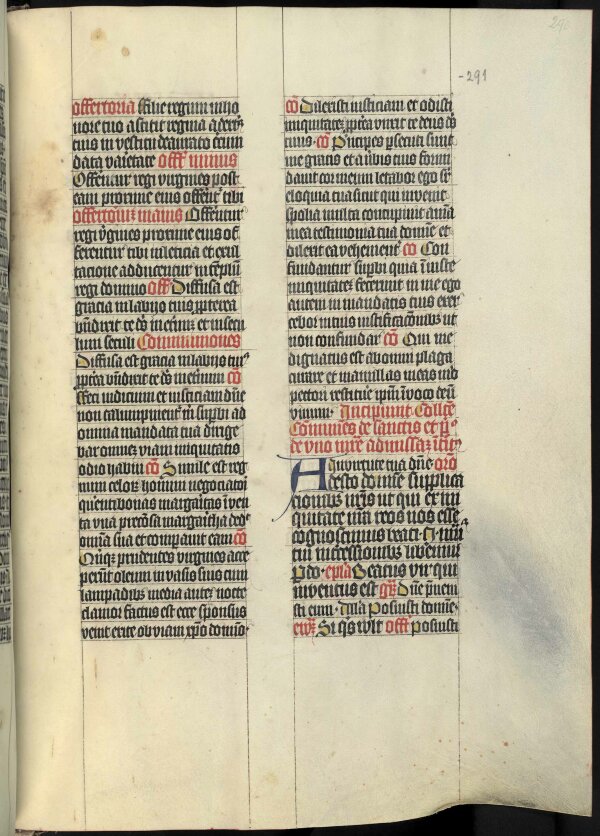 290
-291
offertoria Filie regum in ho
nore tuo astitit regina a dext͛
tuis in vestitu deaurato circū
data varietate off͛ minus
Offerentur regi virgines post
eam proxime eius offerēt͛ tibi
offertoriū maius Offerentur
regi v͛gines proxime eius of
ferentur tibi in leticia et exul
tacione adducentur in tēplū
regi domino off͛ Diffusa est
gracia in labijs tuis ꝓpterea
bn̄dixit te de᷒ in et͛nu᷒ et in secu
lum seculi Communiones
Diffusa est gracia in labijs tui᷒
ꝓpt͛ea bn̄dixit te de᷒ in et͛num cō
Feci iudicium et iusticiam dn̄e
non calumpnient͛ m̄ supbi ad
omnia mandata tua dirige
bar omnē viam iniquitatis
odio habui cō Simile est reg
num celoꝝ homini negociatori
querenti bonas margaritas īven
ta vna preciosa margarita ded᷒
omnia sua et compauit eam cō
Quīqꝫ prudentes virgines acce
perūt oleum in vasis suis cum
lampadibꝫ media autē nocte
clamor factus est ecce sponsus
venit exite obviam xp̄o domīo
cō Dilexisti iusticiam et odisti
iniquitatē ꝓpt͛ea vnxit te deus de᷒
tuus cō Principes ꝑsecuti sunt
me gratis et a v͛bis tuis formi
davit cor meum letabor ego sr̄
eloquia tua sicut qui invenit
spolia multa concupiuit aīma
mea testimonia tua domīe et
dilexit ea vehement͛ cō Con
fundantur supbi quia īiuste
iniquitatē fecerunt in me ego
autem in mandatis tuis exer
cebor in tuis iustificacōnibꝫ ut
non confundar cō Qui me
dignatus est ab omni plaga
curare et mamillas meas meo
pectori restituē ip̄m īvoco deū
vivum Incipiunt Collēte
Communes de sanctis et p͛o
A
desto domine supplica
cionibꝫ nr̄is ut qui ex ini
quitate nr̄a reos nos esse
cognoscimus beati N. mr̄is
tui intercessionibꝫ liberemur
P do epl̄a Beatus vir qui
inventus est gr̄ Dn̄e p̄uenisti
sti eum Posuisti domīe
ewꝫ Si qͥs vult off͛ Posuisti